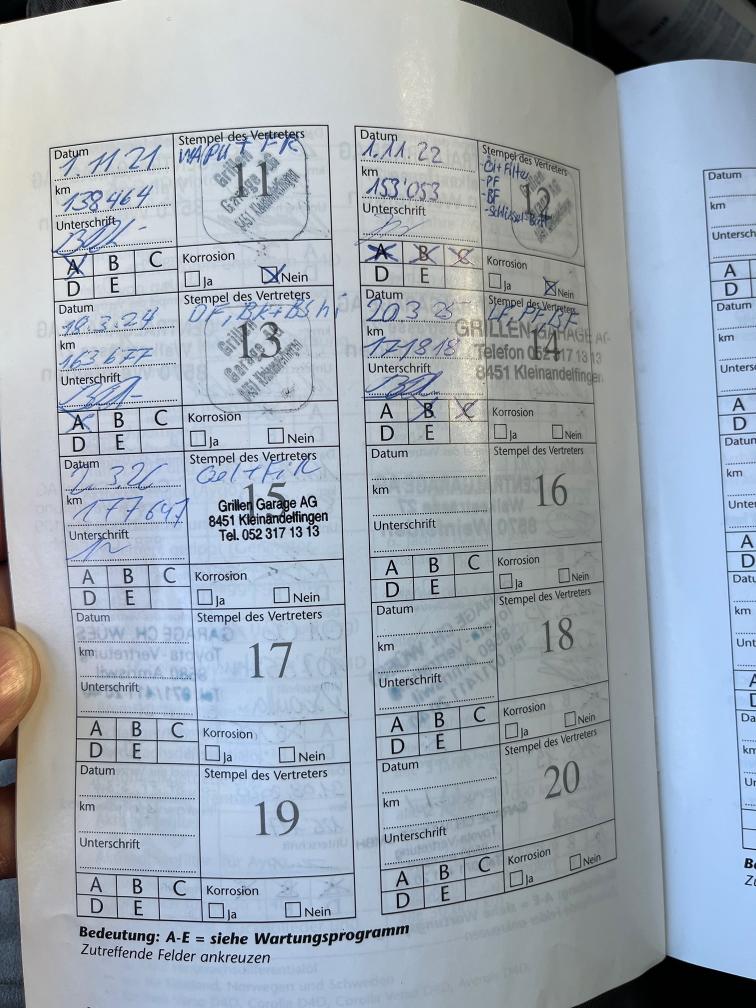 Datum
1.11.21
km
138464
Unterschrift
Stempel des Vertreters
11
Grillen
Garage AG
8451 Kleinandelfingen
A B C
D E
Korrosion
Ja Nein
Datum
1.11.22
km
153'053
Unterschrift
Stempel des Vertreters
Öl+Filter
-PF
-BF
12
A B C
D E
Korrosion
Ja Nein
Datum
18.3.24
km
163677
Unterschrift
Stempel des Vertreters
13
Grillen
Garage AG
8451 Kleinandelfingen
A B C
D E
Korrosion
Ja Nein
Datum
20.3.25
km
171818
Unterschrift
Stempel des Vertreters
LF, PF, BF
14
GRILLEN GARAGE AG
Telefon 052 317 13 13
8451 Kleinandelfingen
A B C
D E
Korrosion
Ja Nein
Datum
2.3.26
km
177647
Unterschrift
Stempel des Vertreters
Oel+FiK
15
Grillen Garage AG
8451 Kleinandelfingen
Tel. 052 317 13 13
A B C
D E
Korrosion
Ja Nein
Datum
km
Unterschrift
Stempel des Vertreters
16
A B C
D E
Korrosion
Ja Nein
Datum
km
Unterschrift
Stempel des Vertreters
17
A B C
D E
Korrosion
Ja Nein
Datum
km
Unterschrift
Stempel des Vertreters
18
A B C
D E
Korrosion
Ja Nein
Datum
km
Unterschrift
Stempel des Vertreters
19
A B C
D E
Korrosion
Ja Nein
Datum
km
Unterschrift
Stempel des Vertreters
20
A B C
D E
Korrosion
Ja Nein
Bedeutung: A-E = siehe Wartungsprogramm
Zutreffende Felder ankreuzen
Datum
km
A
D
Datum
km
A
D
km
A
D
km
A
km